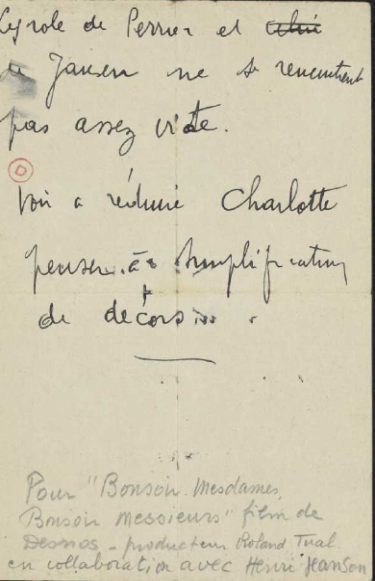 Le role de Perrier et celui
de Jansen ne se rencontrent
pas assez vite.
Voir a réduire Charlotte
penser à simplification
de décors...
Pour "Bonsoir Mesdames,
Bonsoir Messieurs" film de
Desnos - producteur Roland Tual
en collaboration avec Henri Jeanson